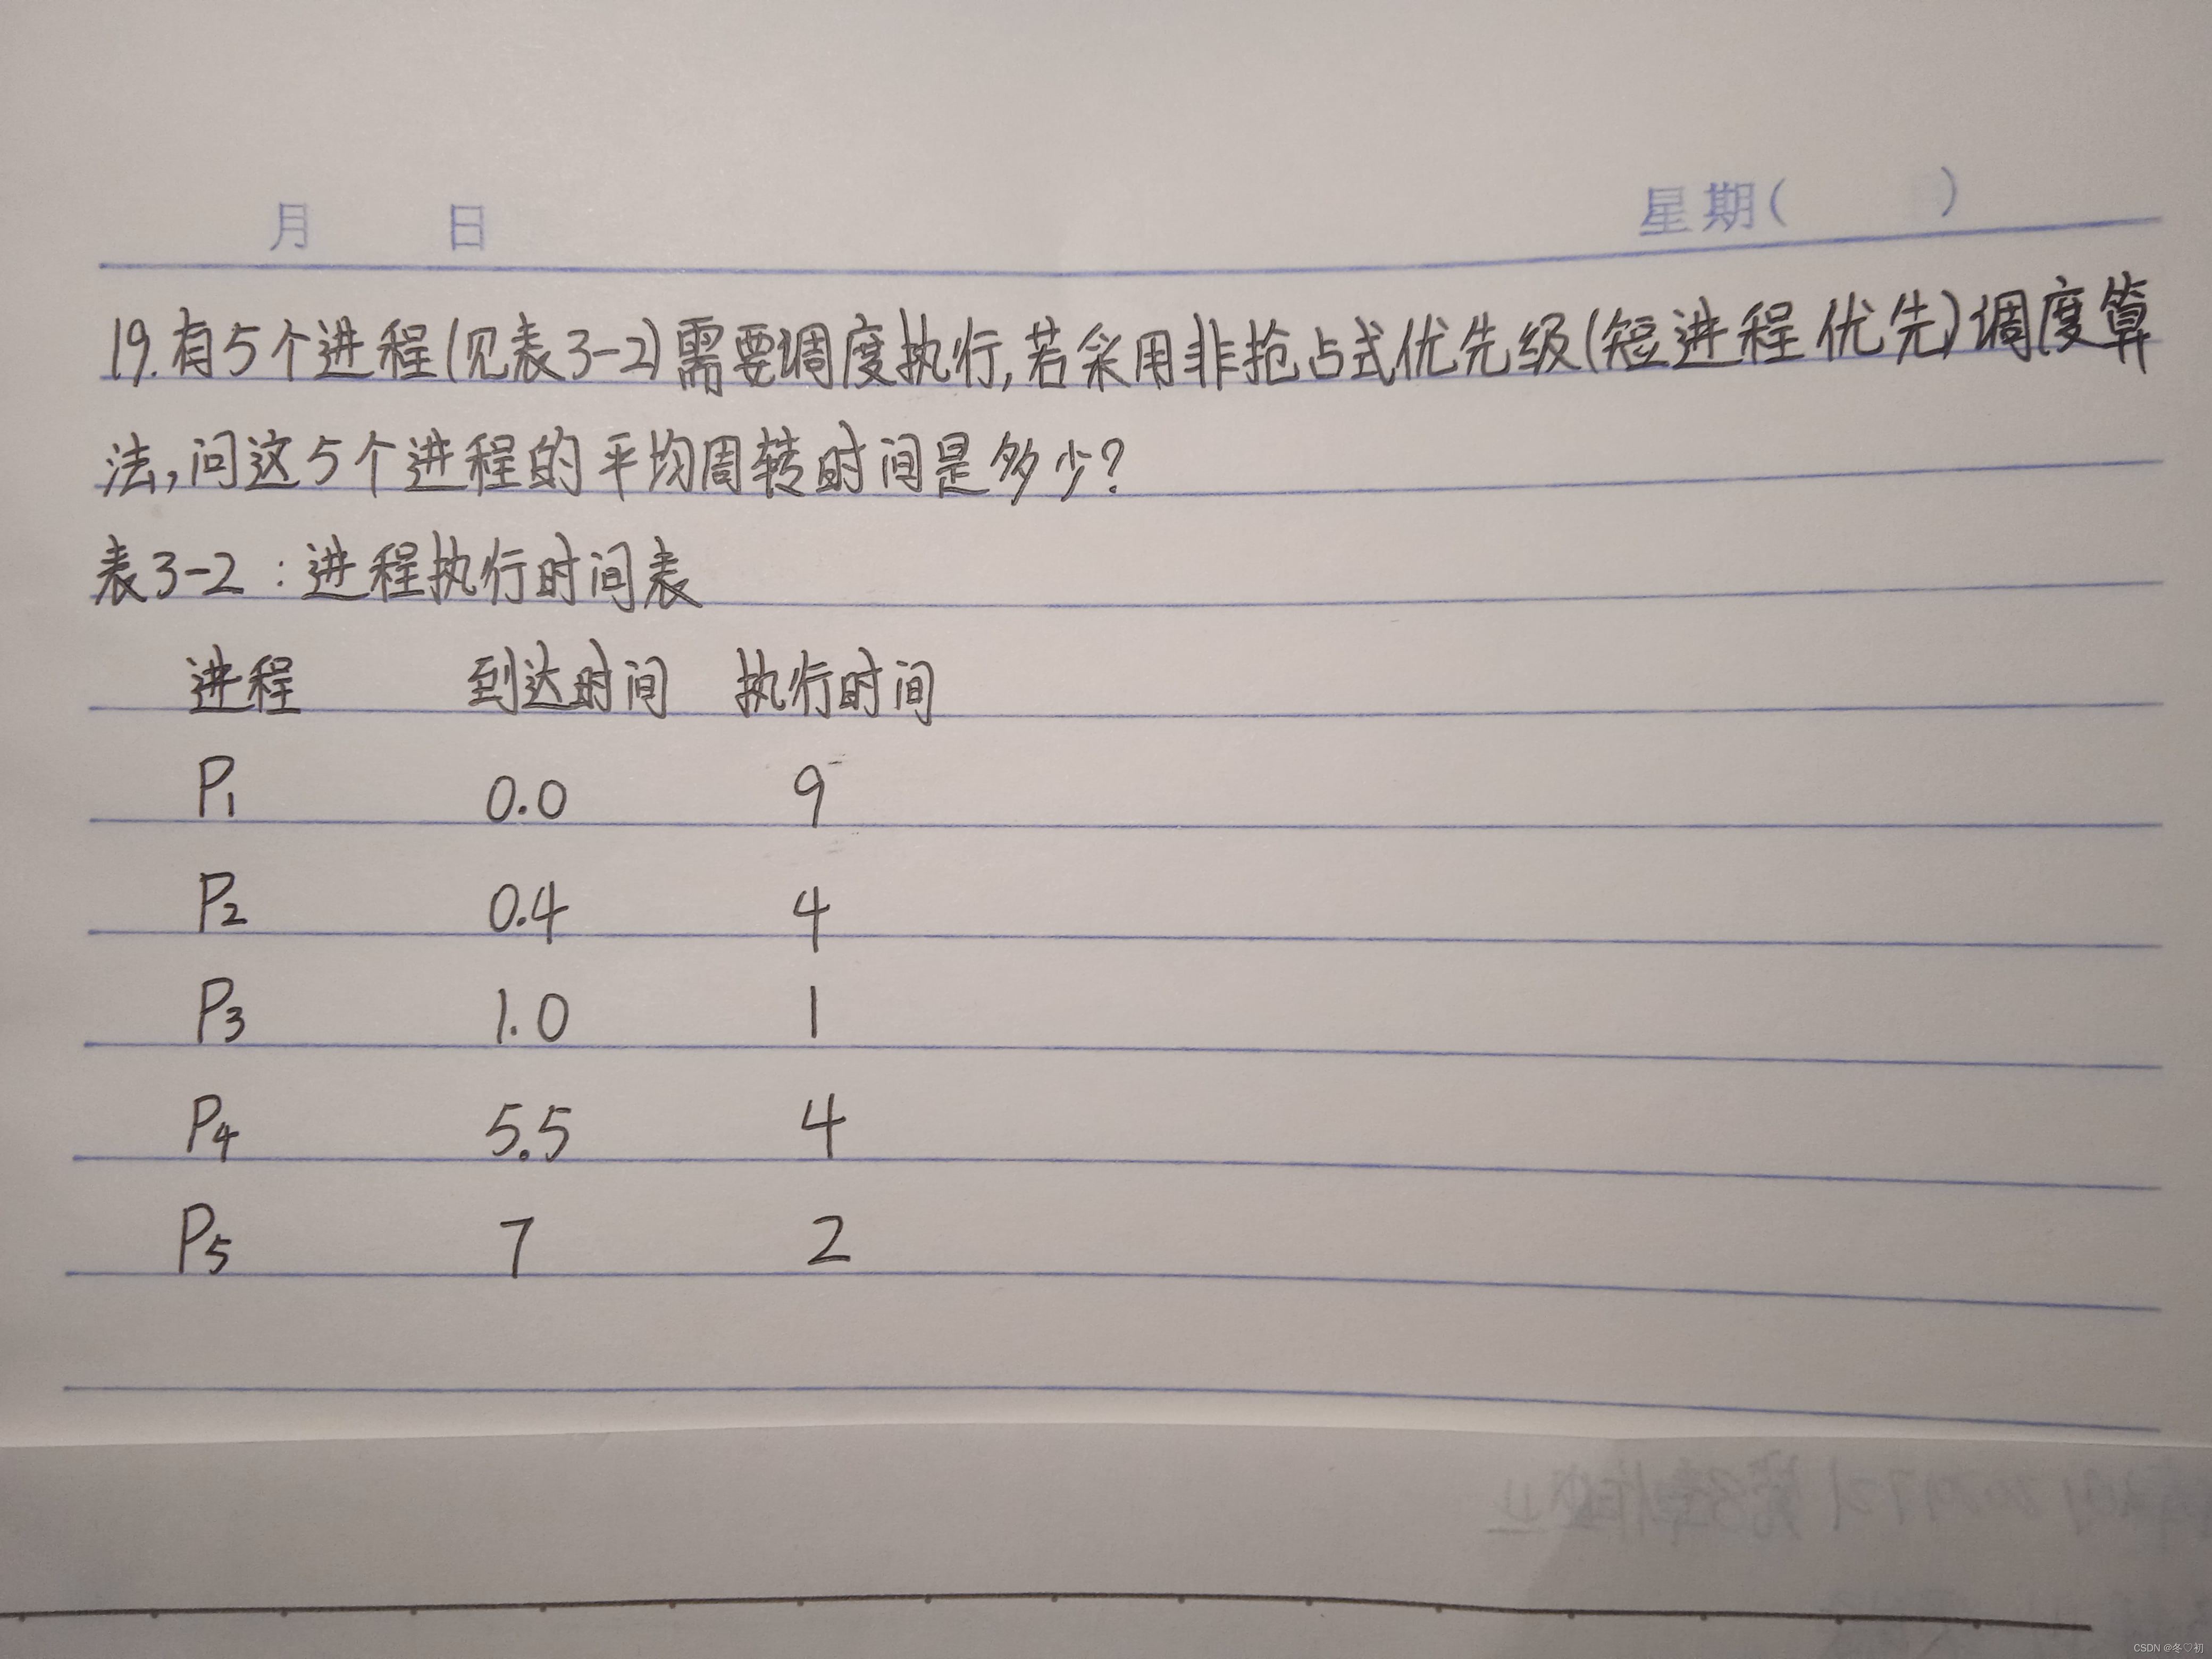 月 日 星期( )
19.有5个进程(见表3-2)需要调度执行,若采用非抢占式优先级(短进程优先)调度算
法,问这5个进程的平均周转时间是多少?
表3-2:进程执行时间表
进程 到达时间 执行时间
P1 0.0 9
P2 0.4 4
P3 1.0 1
P4 5.5 4
P5 7 2
CSDN @冬♡初